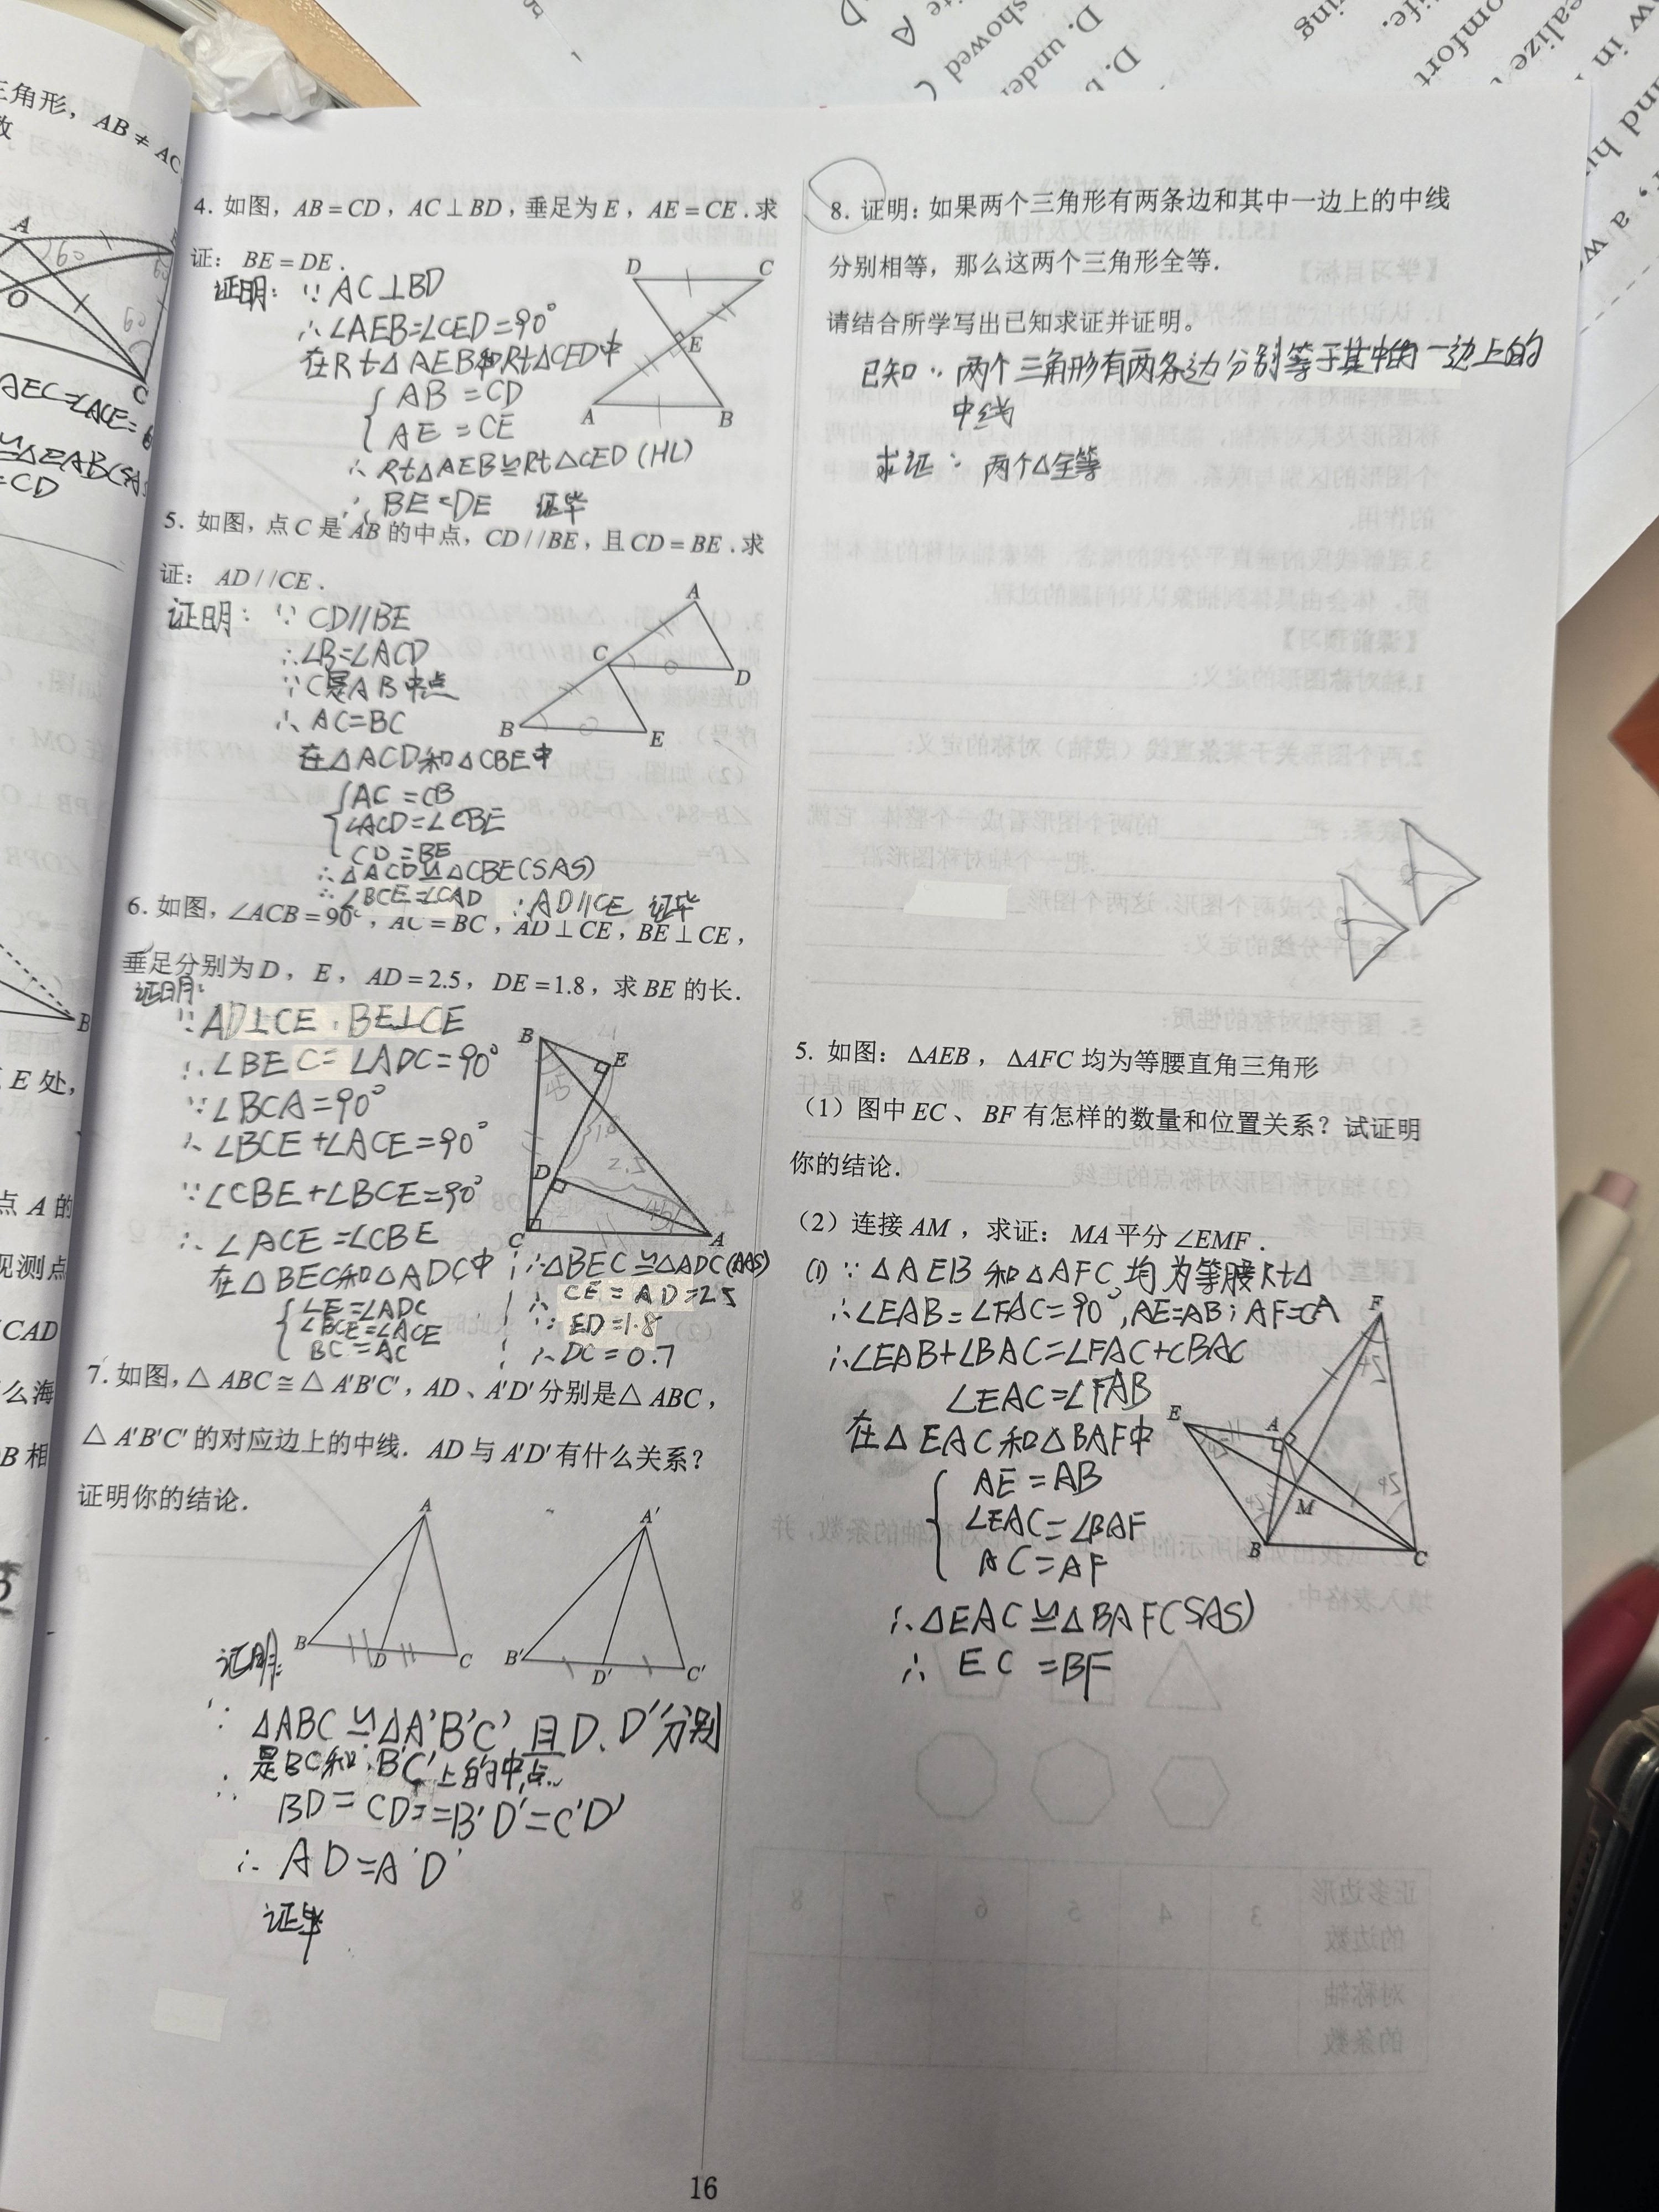 三角形，AB≠AC
数
A
60
O
C
AEC=∠ACE=6
≌△EAB(SAS
=CD
B
E处，
点A的
观测点
CAD
么海
B相
4. 如图，AB=CD，AC⊥BD，垂足为E，AE=CE．求
证：BE=DE．
证明：∵AC⊥BD
∴∠AEB=∠CED=90°
在Rt△AEB和Rt△CED中
AB=CD
AE=CE
∴Rt△AEB≌Rt△CED(HL)
∴BE=DE 证毕
D C
E
A B
5. 如图，点C是AB的中点，CD//BE，且CD=BE．求
证：AD//CE．
证明：∵CD//BE
∴∠B=∠ACD
∵C是AB中点
∴AC=BC
在△ACD和△CBE中
AC=CB
∠ACD=∠CBE
CD=BE
∴△ACD≌△CBE(SAS)
∴∠BCE=∠CAD ∴AD∥CE 证毕
A
C
D
B
E
6. 如图，∠ACB=90°，AC=BC，AD⊥CE，BE⊥CE，
垂足分别为D，E，AD=2.5，DE=1.8，求BE的长．
证明：
∵AD⊥CE，BE⊥CE
∴∠BEC=∠ADC=90°
∵∠BCA=90°
∴∠BCE+∠ACE=90°
∵∠CBE+∠BCE=90°
∴∠ACE=∠CBE
在△BEC和△ADC中
∠E=∠ADC
∠BCE=∠ACE
BC=AC
∴△BEC≌△ADC(AAS)
∴CE=AD=2.5
∵ED=1.8
∴DC=0.7
B
E
45
1.8
2.5
D
45
C A
7. 如图，△ABC≅△A'B'C'，AD、A'D'分别是△ABC，
△A'B'C'的对应边上的中线．AD与A'D'有什么关系？
证明你的结论．
A A'
B D C B' D' C'
证明：
∵△ABC≌△A'B'C'，且D、D'分别
是BC和B'C'上的中点
∴BD=CD=B'D'=C'D'
∴AD=A'D'
证毕
8. 证明：如果两个三角形有两条边和其中一边上的中线
分别相等，那么这两个三角形全等．
请结合所学写出已知求证并证明。
已知：两个三角形有两条边分别等于其中的一边上的
中线
求证：两个△全等
5. 如图：△AEB，△AFC均为等腰直角三角形
（1）图中EC、BF有怎样的数量和位置关系？试证明
你的结论．
（2）连接AM，求证：MA平分∠EMF．
(1)∵△AEB和△AFC均为等腰Rt△
∴∠EAB=∠FAC=90°,AE=AB；AF=CA
∴∠EAB+∠BAC=∠FAC+CBAC
∠EAC=∠FAB
在△EAC和△BAF中
AE=AB
∠EAC=∠BAF
AC=AF
∴△EAC≌△BAF(SAS)
∴EC=BF
F
E A
M
B C
16